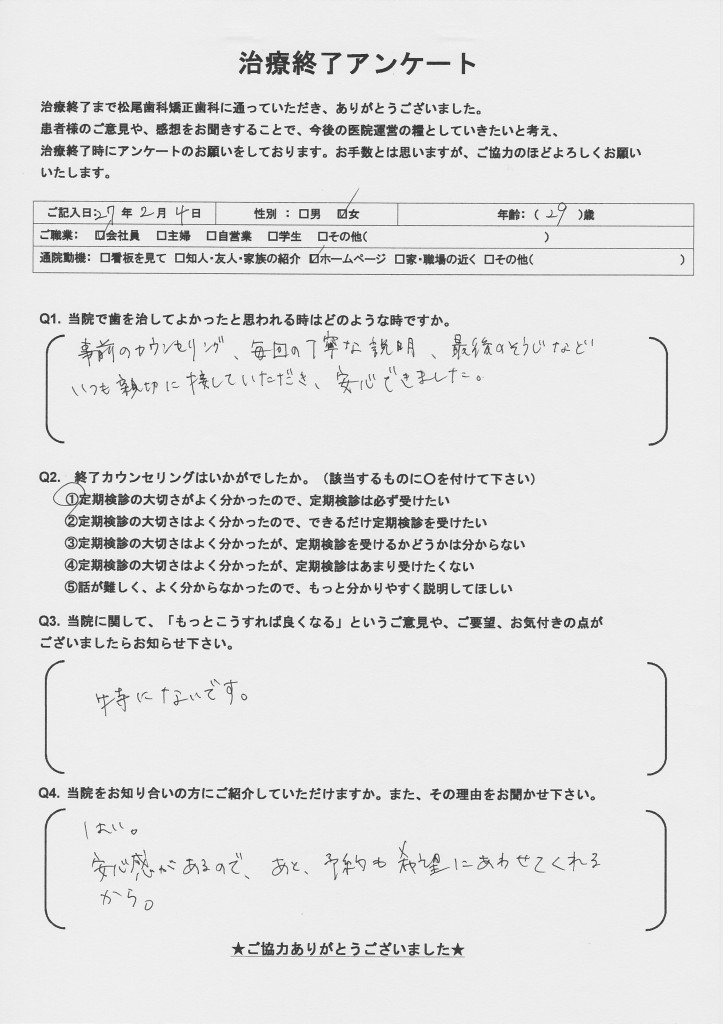 治療終了アンケート
治療終了まで松尾歯科矯正歯科に通っていただき、ありがとうございました。
患者様のご意見や、感想をお聞きすることで、今後の医院運営の糧としていきたいと考え、
治療終了時にアンケートのお願いをしております。お手数とは思いますが、ご協力のほどよろしくお願い
いたします。
ご記入日:27年2月4日 性別 : □男 ☑女 年齢:( 29 )歳
ご職業: ☑会社員 □主婦 □自営業 □学生 □その他( )
通院動機: □看板を見て □知人・友人・家族の紹介 ☑ホームページ □家・職場の近く □その他( )
Q1. 当院で歯を治してよかったと思われる時はどのような時ですか。
事前のカウンセリング、毎回の丁寧な説明、最後のそうじなど
いつも親切に接していただき、安心できました。
Q2. 終了カウンセリングはいかがでしたか。(該当するものに〇を付けて下さい)
①定期検診の大切さがよく分かったので、定期検診は必ず受けたい
②定期検診の大切さはよく分かったので、できるだけ定期検診を受けたい
③定期検診の大切さはよく分かったが、定期検診を受けるかどうかは分からない
④定期検診の大切さはよく分かったが、定期検診はあまり受けたくない
⑤話が難しく、よく分からなかったので、もっと分かりやすく説明してほしい
Q3. 当院に関して、「もっとこうすれば良くなる」というご意見や、ご要望、お気付きの点が
ございましたらお知らせ下さい。
特にないです。
Q4. 当院をお知り合いの方にご紹介していただけますか。また、その理由をお聞かせ下さい。
はい。
安心感があるので、あと、予約も希望にあわせてくれる
から。
★ご協力ありがとうございました★